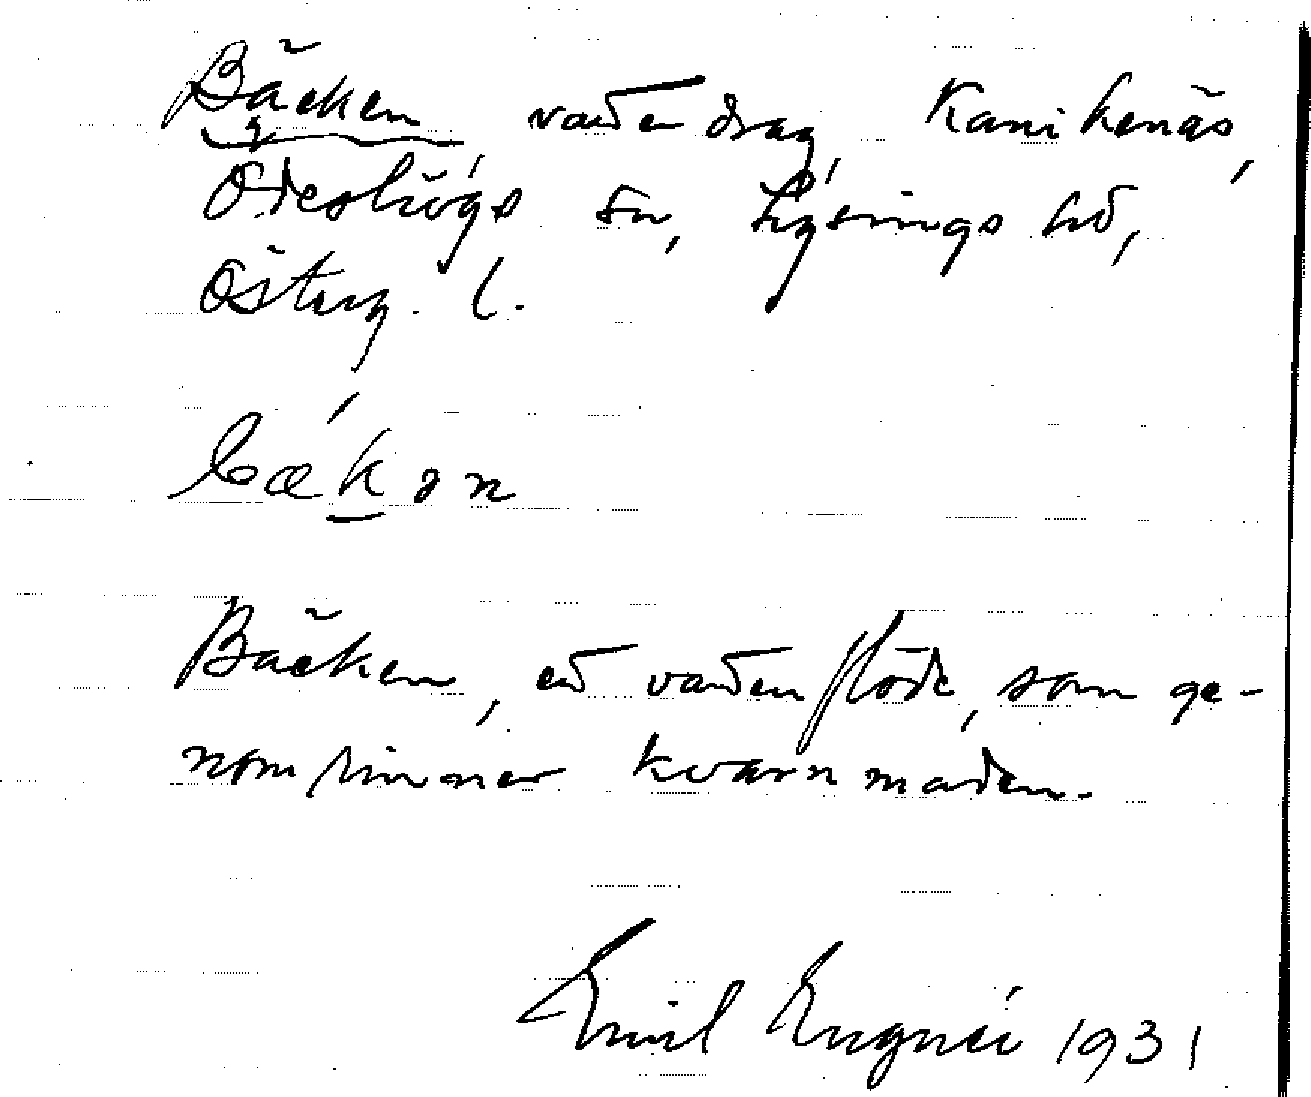 Bäcken, vattendrag, Kanikenäs,
Ödeshögs sn, Lysings hd,
Österg. l.
bækən
Bäcken, ett vattenflöde, som ge-
nomrinner kvarnmaden.
Emil Engnér 1931